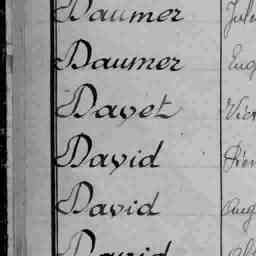 Daumer Jule
Daumer Eug
Davet Vict
David Pier
David Aug
David